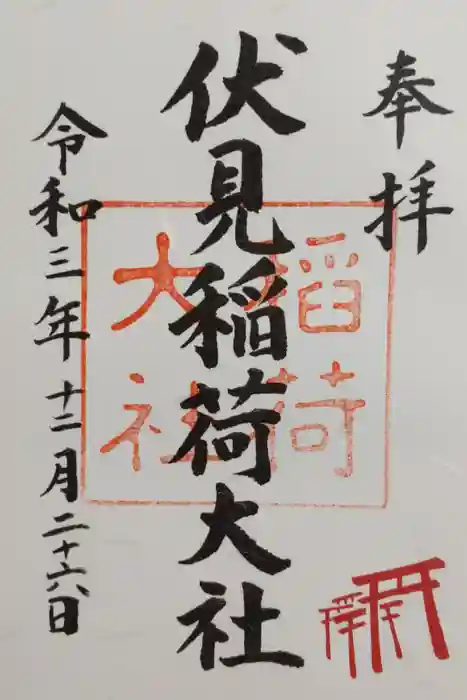 奉拝
伏見稲荷大社
令和三年十二月二十六日
稲荷
大社